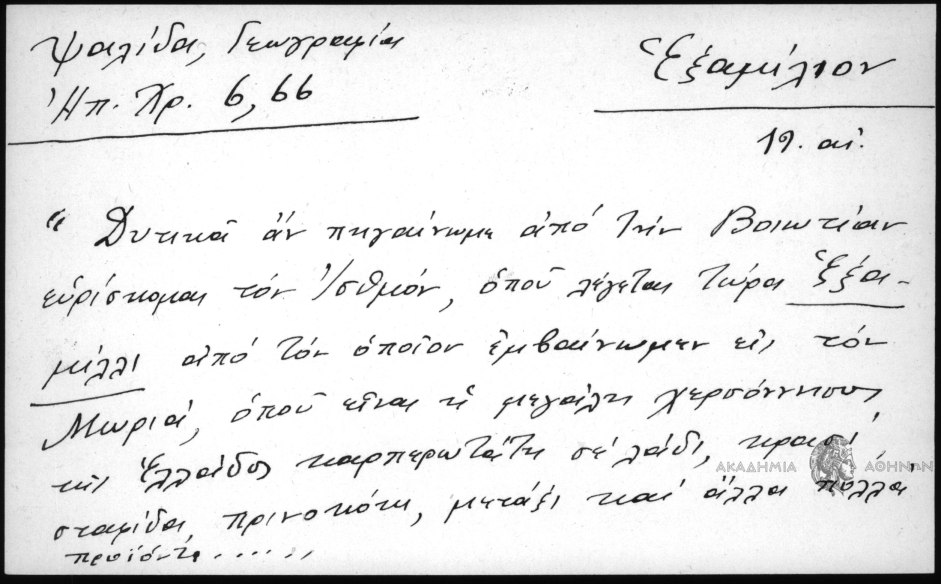 Ψαλίδα, Γεωγραφία
Ἠπ. Χρ. 6, 66
Ἑξαμίλιον
19. αἰ.
"Δυτικὰ ἄν πηγαίνωμε ἀπό τήν Βοιωτίαν
εὑρίσκομαι τόν Ἰσθμόν, ὁποῦ λέγεται τώρα Ἑξα-
μίλλι ἀπό τόν ὁποῖον ἐμβαίνωμεν εἰς τόν
Μωριά, ὁποῦ εἶναι ἡ μεγάλη χερσόννησος
τῆς Ἑλλάδος καρπερωτάτη σέ λάδι, κρασί
σταφίδα, πρινοκόκι, μετάξι καί ἄλλα πολλά
προϊόντα......
ΑΚΑΔΗΜΙΑ ΑΘΗΝΩΝ